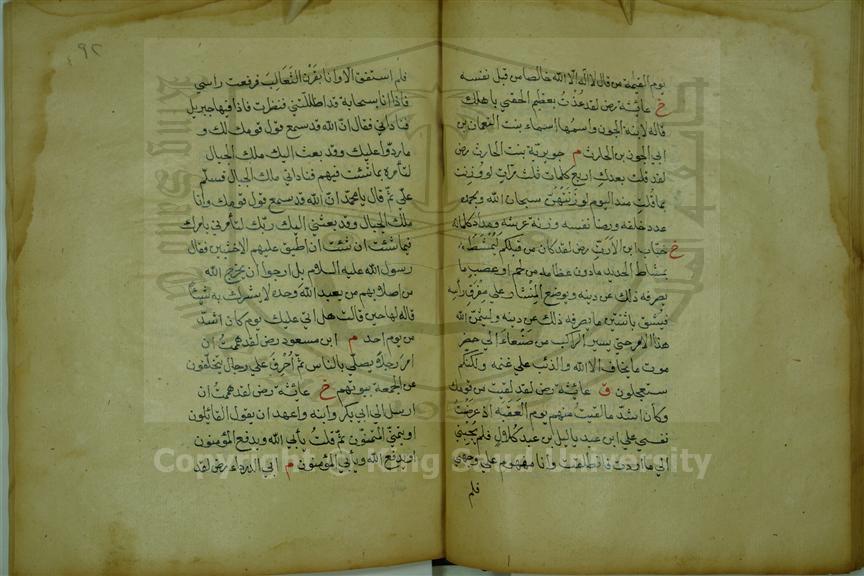 يوم القيمة من قال لا اله الا الله خالصا من قبل نفسه
خ عايشة رض لقد عذت بعظيم الحقي باهلك
قاله لابنة الجون واسمها اسماء بنت النعمان بن
ابي الجون بن الحارث م جويرية بنت الحارث رض
لقد قلت بعدك اربع كلمات ثلث مرات لو وزنت
بما قلت منذ اليوم لوزنتهن سبحان الله وبحمده
عدد خلقه ورضا نفسه وزنة عرشه ومداد كلماته
خ خباب ابن الارت رض لقد كان من قبلكم ليمشط
بمشاط الحديد ما دون عظامه من لحم او عصب ما
يصرفه ذلك عن دينه ويوضع المنشار على مفرق راسه
فيشق باثنتين ما يصرفه ذلك عن دينه وليتمن الله
هذا الامر حتى يسير الراكب من صنعاء الى حضر
موت ما يخاف الا الله والذئب على غنمه ولكنكم
ستعجلون ق عايشة رض لقد لقيت من قومك
وكان اشد ما لقيت منهم يوم العقبة اذ عرضت
نفسي على ابن عبد ياليل بن عبد كلال فلم يجبني
الى ما اردت فانطلقت وانا مهموم على وجهي
فلم
٩٢
فلم استفق الا وانا بقرن الثعالب فرفعت راسي
فاذا انا بسحابة قد اظلتني فنظرت فاذا فيها جبريل
فناداني فقال ان الله قد سمع قول قومك لك و
ما ردوا عليك وقد بعث اليك ملك الجبال
لتامره بما شئت فيهم فناداني ملك الجبال فسلم
علي ثم قال يا محمد ان الله قد سمع قول قومك وانا
ملك الجبال وقد بعثني اليك ربك لتامرني بامرك
فيما شئت ان شئت ان اطبق عليهم الاخشبين فقال
رسول الله عليه السلام بل ارجوا ان يخرج الله
من اصلابهم من يعبد الله وحده لا يشرك به شيئا
قاله لها حين قالت هل اتى عليك يوم كان اشد
من يوم احد م ابن مسعود رض لقد هممت ان
امر رجلا يصلي بالناس ثم احرق على رجال يتخلفون
من الجمعة بيوتهم خ عايشة رض لقد هممت ان
ارسل الى ابي بكر وابنه واعهد ان يقول القائلون
او يتمنى المتمنون ثم قلت يأبى الله ويدفع المؤمنون
او يدفع الله ويأبى المؤمنون م ابي الدرداء رض لقد
Copyright © King Saud University